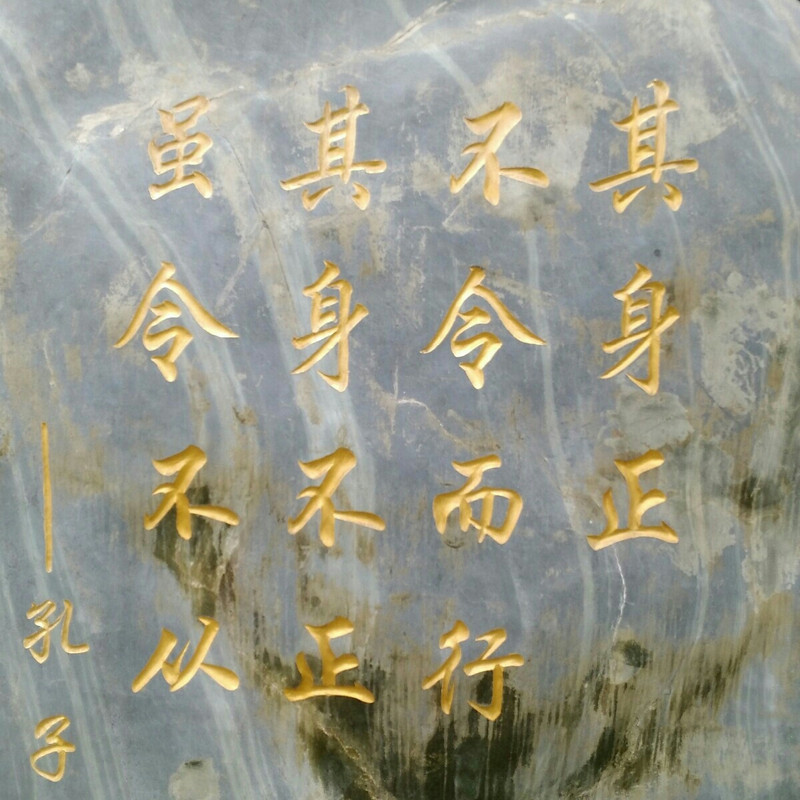 其身正
不令而行
其身不正
虽令不从
——孔子